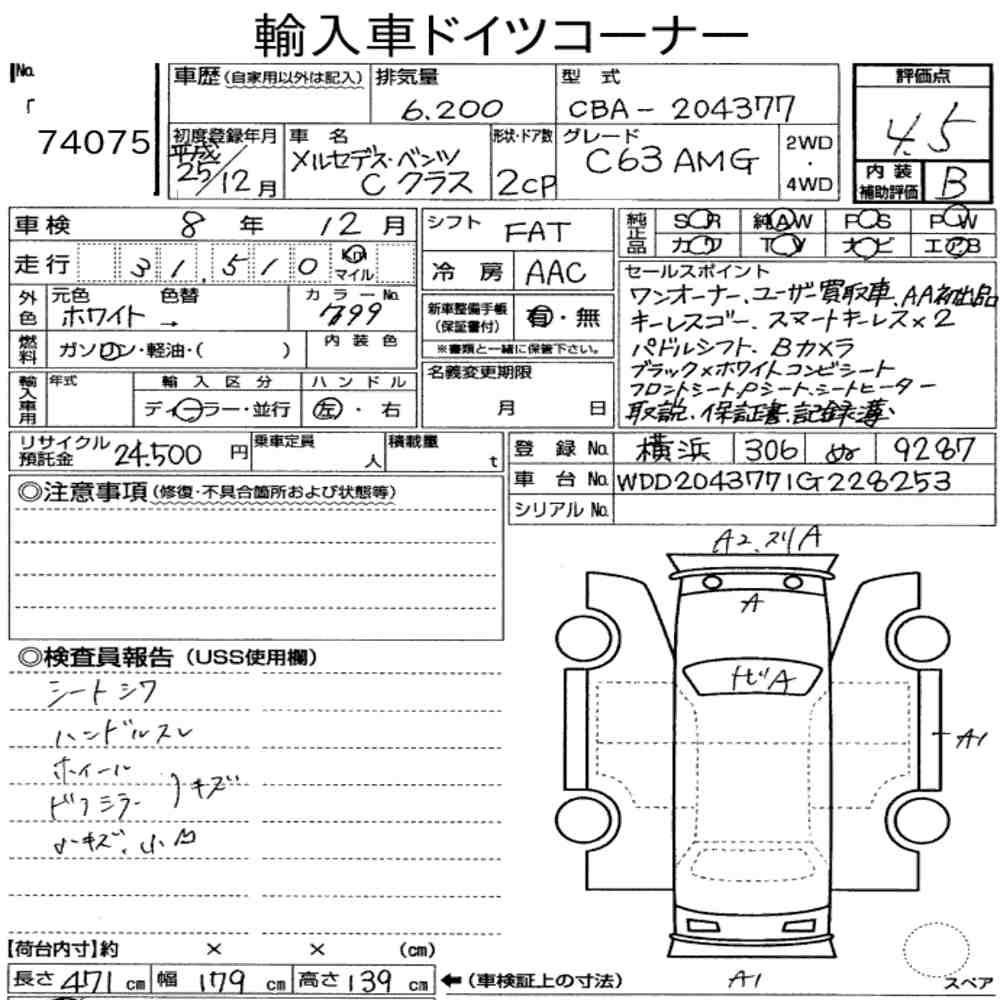 輸入車ドイツコーナー
No.
74075
車歴(自家用以外は記入)
排気量
6.200
型式
CBA-204377
評価点
4.5
初度登録年月
平成
25/12月
車名
メルセデス・ベンツ
Cクラス
形状・ドア数
2CP
グレード
C63AMG
2WD
・
4WD
内装
補助評価
B
車検 8年 12月
走行 31,510 Km
マイル
外色
元色 色替
ホワイト →
カラーNo.
799
燃料
ガソリン・軽油・( )
内装色
輸入車用
年式
輸入区分
ディーラー・並行
ハンドル
左・右
シフト
FAT
冷房
AAC
新車整備手帳
(保証書付)
有・無
※書類と一緒に保管下さい。
名義変更期限
月 日
純正品
SR 純AW PS PW
カワ TV ナビ エアB
セールスポイント
ワンオーナー、ユーザー買取車、AA初出品
キーレスゴー、スマートキーレス×2
パドルシフト、Bカメラ
ブラック×ホワイトコンビシート
フロントシートPシート、シートヒーター
取説、保証書、記録簿
リサイクル
預託金
24.500円
乗車定員
人
積載量
t
登録No.
横浜 306 ぬ 9287
車台No.
WDD2043771G228253
シリアルNo.
◎注意事項(修復・不具合箇所および状態等)
◎検査員報告(USS使用欄)
シートシワ
ハンドルスレ
ホイール
ドアミラー
キズ
小キズ、小凹
A2、スリA
A
トビA
A1
A1
スペア
【荷台内寸】約 × × (cm)
長さ471cm 幅179cm 高さ139cm
←(車検証上の寸法)